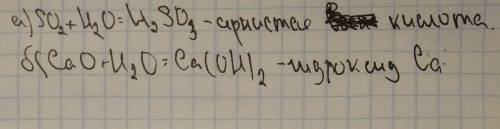 а) SO₂ + H₂O = H₂SO₃ - сернистая кислота.
б) CaO + H₂O = Ca(OH)₂ - гидроксид Ca